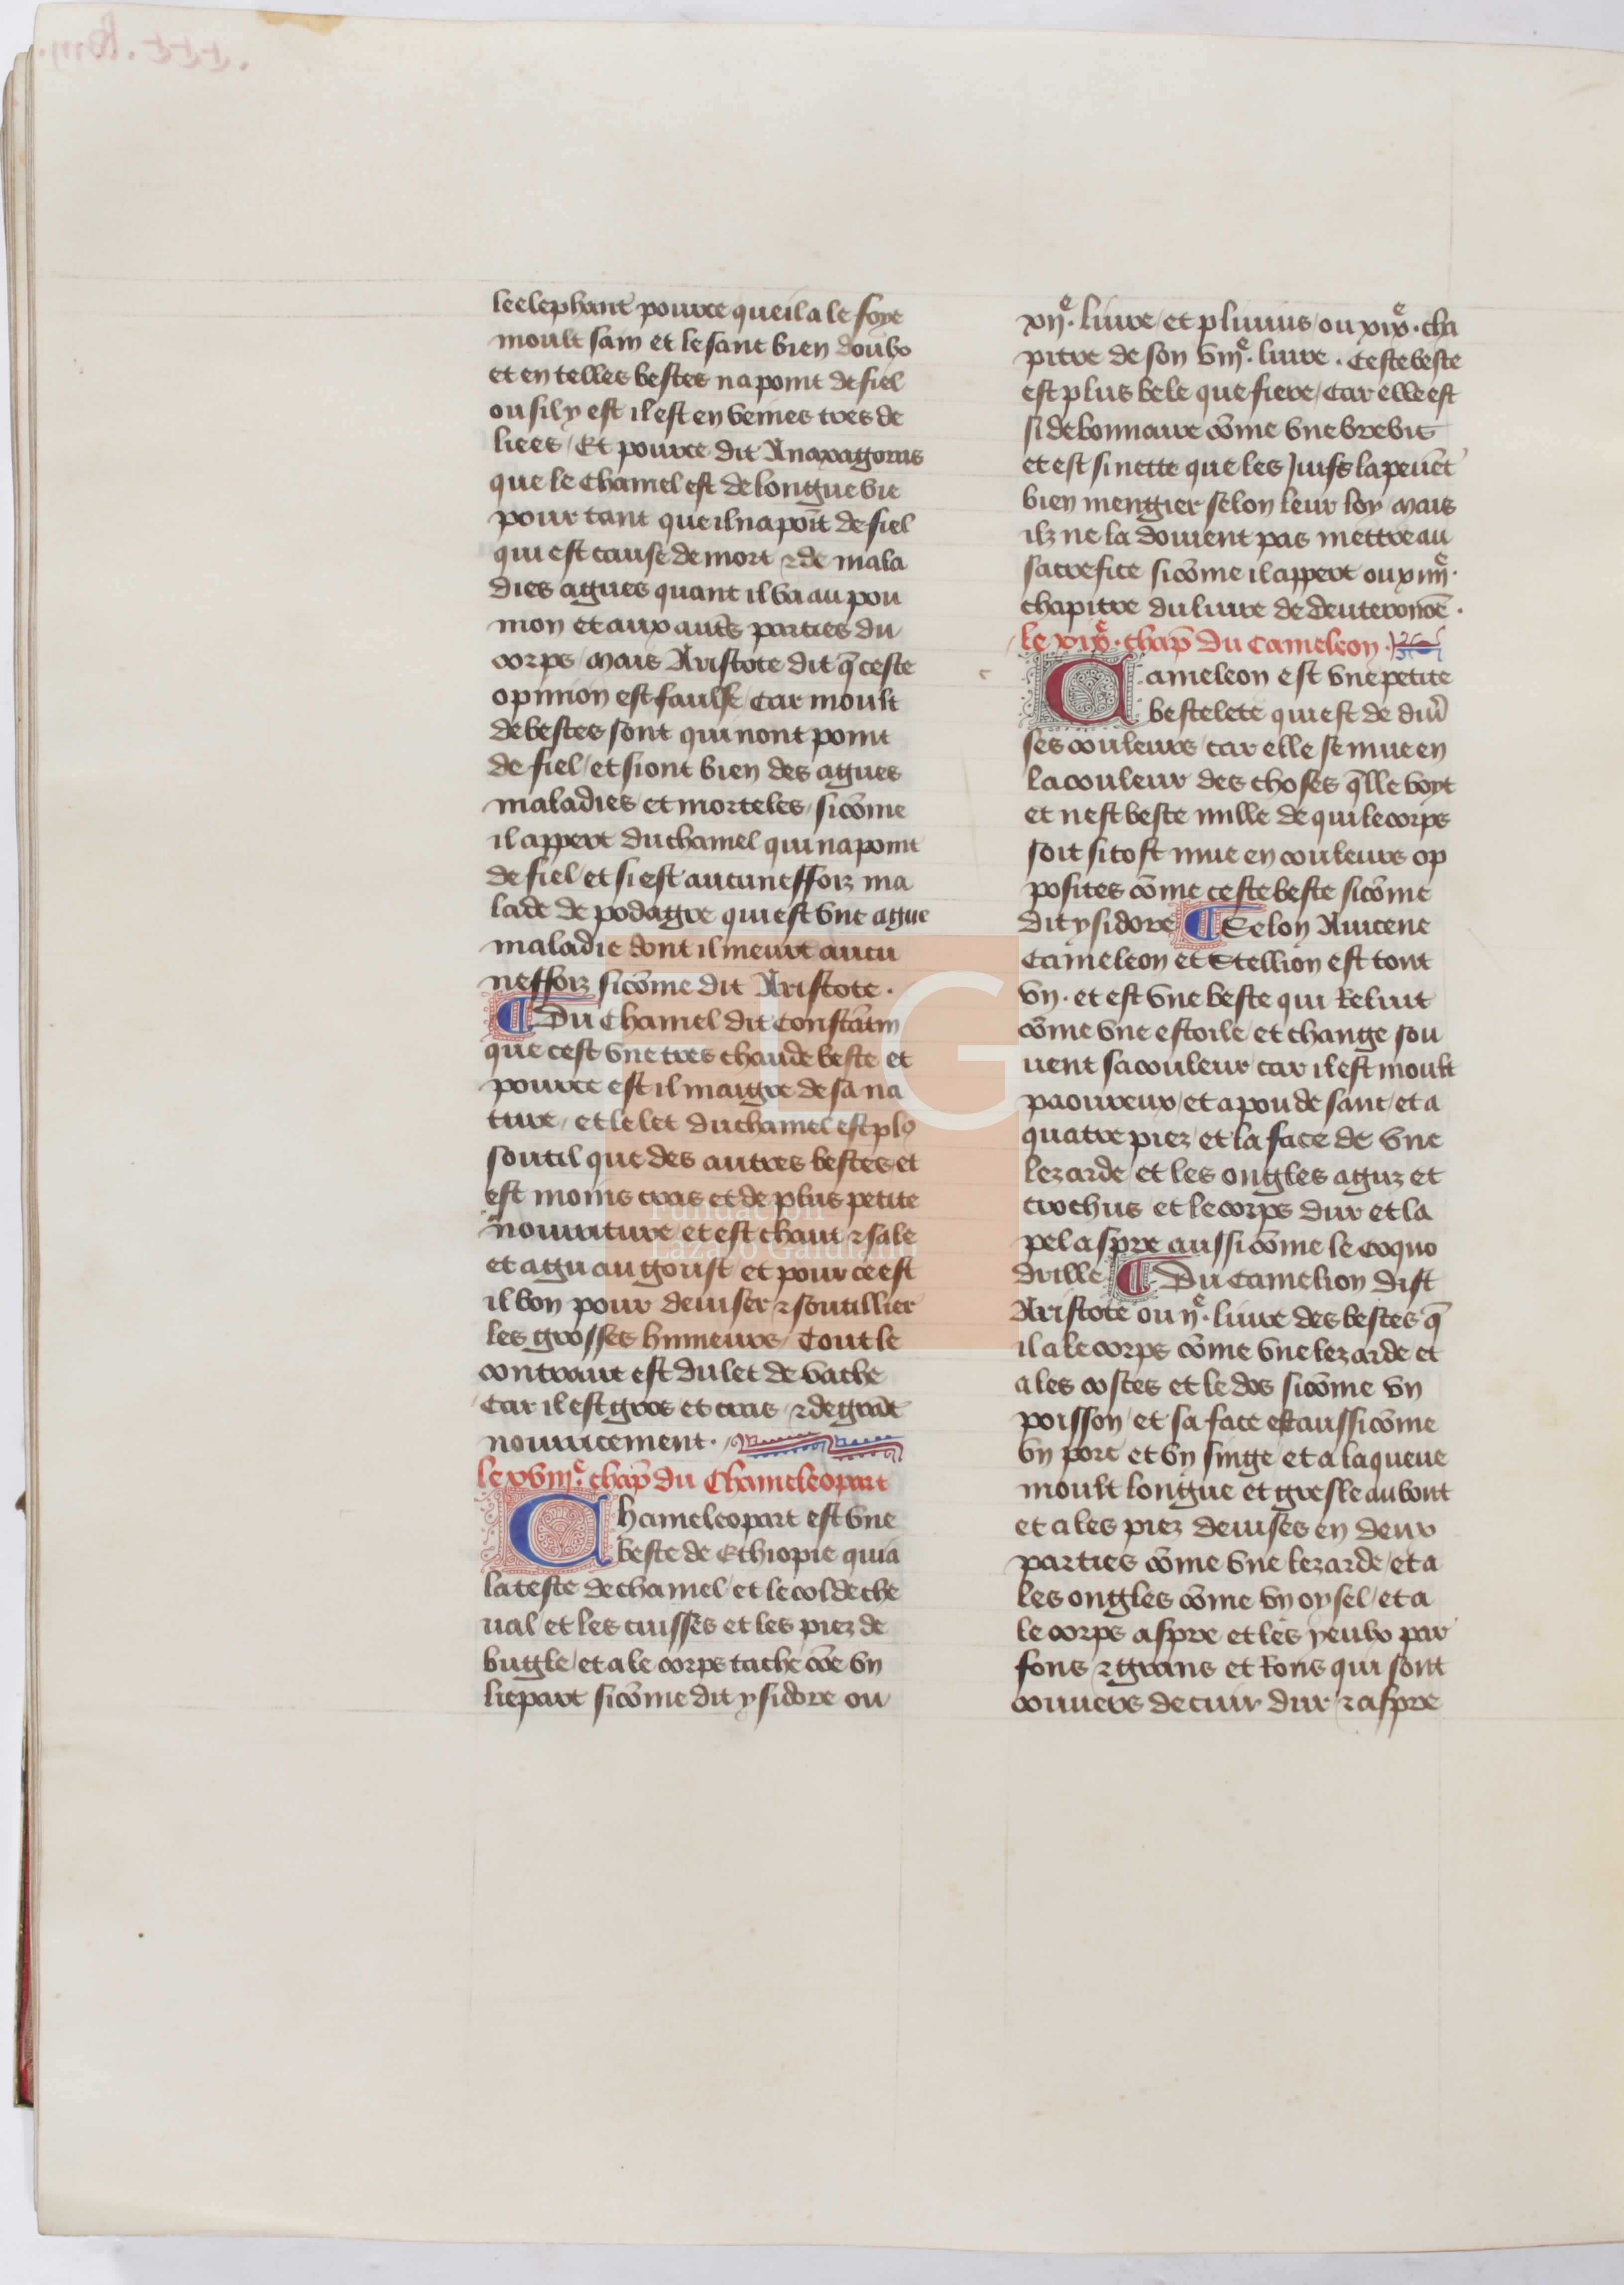 le elephant pource que il a le foye
moult sain et le sanc bien doulx
et en telles bestes na point de fiel
ou sil y est il est en veines tres de
liees / Et pource dit Anaxagoras
que le chamel est de longue vie
pour tant que il na poīt de fiel
qui est cause de mort ⁊ de mala
dies agues quant il va au pou
mon et aux autꝭs parties du
corps / Mais Aristote dit q̄ ceste
opinion est faulse / car moult
de bestes sont qui nont point
de fiel / et si ont bien des agues
maladies et morteles / sicōme
il appert du chamel qui na point
de fiel / et si est aucuneffoiz ma
lade de podagre qui est vne ague
maladie dont il meurt aucu
neffoiz sicōme dit Aristote .
¶ Du Chamel dit Constātin
que cest vne tres chaude beste et
pource est il maigre de sa na
ture / et le let du chamel est plꝰ
soutil que des autres bestes et
est moins cras et de plus petite
nourriture / et est chaut ⁊ sale
et agu au goust et pour ce est
il bon pour deuiser ⁊ soutillier
les grosses humeurs / Tout le
contraire est du let de vache
Car il est gros et cras / ⁊ de grāt
nourricement .
le xviij.ͤ chap̄ du Chameleopart
Chameleopart est vne
beste de Ethiopie qui a
la teste de chamel / et le col de che
ual / et les cuisses et les piez de
bugle / et a le corps tache cōe vn
liepart sicōme dit ysidore ou
xij.ͤ liure / et plinius / ou xix.ͤ cha
pitre de son viij.ͤ liure . Ceste beste
est plus bele que fiere / Car elle est
si debonnaire cōme vne brebis
et est si nette que les Juifs la peuēt
bien mengier selon leur loy Mais
ilz ne la doiuent pas mettre au
sacrefice sicōme il appert ou xiiij.ͤ
chapitre du liure de deuteronoē .
le xix.ͤ chap̄ du Cameleon .
Cameleon est vne petite
bestelete qui est de diu̾
ses couleurs / car elle se mue en
la couleur des choses q̄lle voyt
et nest beste nulle de qui le corps
soit si tost mue en couleurs op
posites cōme ceste beste sicōme
dit ysidore ¶ Selon Auicene
Cameleon et Stellion est tout
vn . et est vne beste qui Reluit
cōme vne estoile / et change sou
uent sa couleur car il est moult
paoureux / et a pou de sanc / et a
quatre piez / et la face de vne
lezarde / et les ongles aguz et
crochus et le corps dur et la
pel aspre aussi cōme le coquo
drille ¶ Du Camelion dist
Aristote ou ij.ͤ liure des bestes q̄
il a le corps cōme vne lezarde et
a les costes et le dos sicōme vn
poisson / et sa face est aussi cōme
vn porc et vn singe / et a la queue
moult longue et gresle au bout
et a les piez deuises en deux
parties cōme vne lezarde / et a
les ongles cōme vn oysel / et a
le corps aspre et les yeulx par
fons ⁊ grans et Rons qui sont
couuers de cuir dur / ⁊ aspre
FLG
Fundación
Lázaro Galdiano